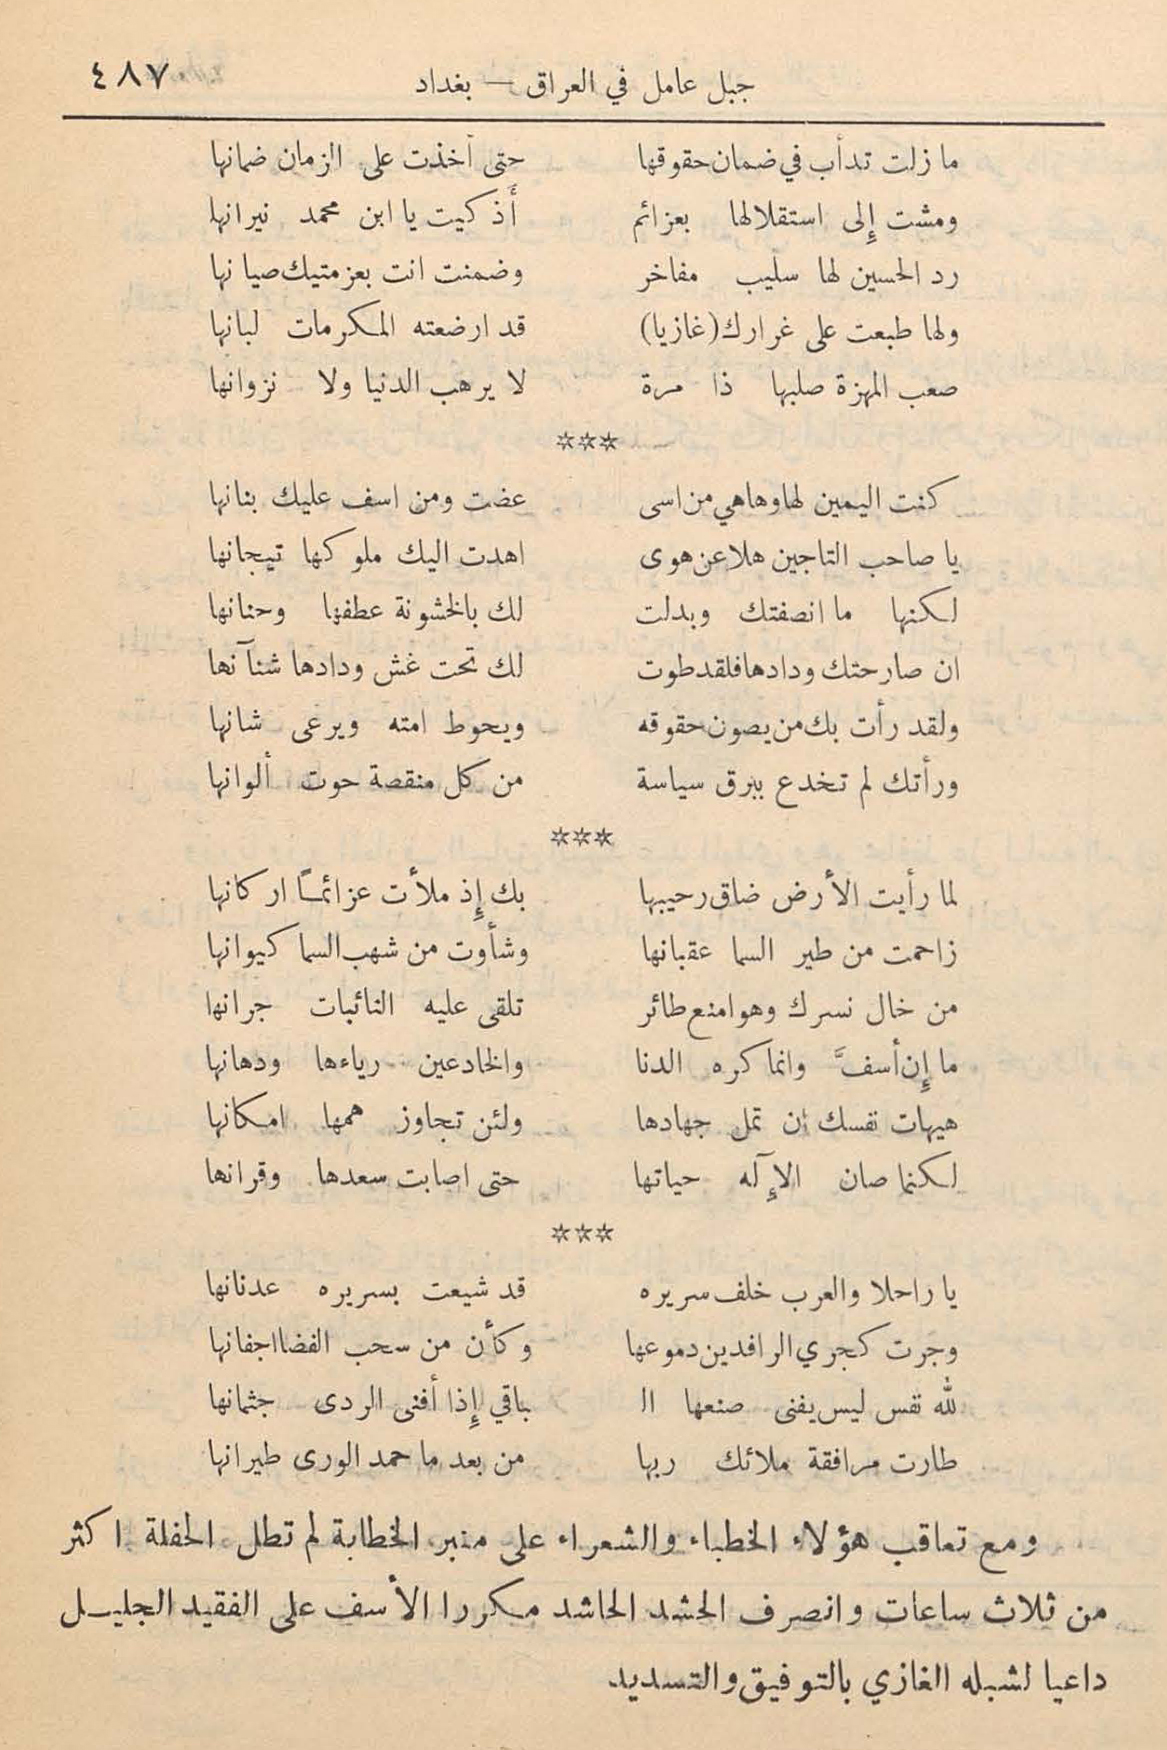 جبل عامل في العراق — بغداد ٤٨٧
ما زلت تدأب في ضمان حقوقها حتى أخذت على الزمان ضمانها
ومشت إلى استقلالها بعزائم أذكيت يا ابن محمد نيرانها
رد الحسين لها سليب مفاخر وضمنت انت بعزمتيك صيانها
ولها طبعت على غرارك (غازيا) قد ارضعته المكرمات لبانها
صعب المهزة صلبها ذا مرة لا يرهب الدنيا ولا نزوانها
***
كنت اليمين لها وهاهي من اسى عضت ومن اسف عليك بنانها
يا صاحب التاجين هلا عن هوى اهدت اليك ملوكها تيجانها
لكنها ما انصفتك وبدلت لك بالخشونة عطفها وحنانها
ان صارحتك ودادها فلقد طوت لك تحت غش ودادها شنآنها
ولقد رأت بك من يصون حقوقه ويحوط امته ويرعى شانها
ورأتك لم تخدع ببرق سياسة من كل منقصة حوت ألوانها
***
لما رأيت الأرض ضاق رحيبها بك إذ ملأت عزائمًا اركانها
زاحمت من طير السما عقبانها وشأوت من شهب السما كيوانها
من خال نسرك وهو امنع طائر تلقى عليه النائبات جرانها
ما إن أسفَّ وانما كره الدنا والخادعين رياءها ودهانها
هيهات نفسك ان تمل جهادها ولئن تجاوز همها امكانها
لكنما صان الإآله حياتها حتى اصابت سعدها وقرانها
***
يا راحلا والعرب خلف سريره قد شيعت بسريره عدنانها
وجرت كجري الرافدين دموعها وكأن من سحب الفضا اجفانها
لله نفس ليس يفنى صنعها الـ باقي إذا أفنى الردى جثمانها
طارت مرافقة ملائك ربها من بعد ما حمد الورى طيرانها
ومع تعاقب هؤلاء الخطباء والشعراء على منبر الخطابة لم تطل الحفلة اكثر
من ثلاث ساعات وانصرف الحشد الحاشد مكررا الأسف على الفقيد الجليل
داعيا لشبله الغازي بالتوفيق والتسديد